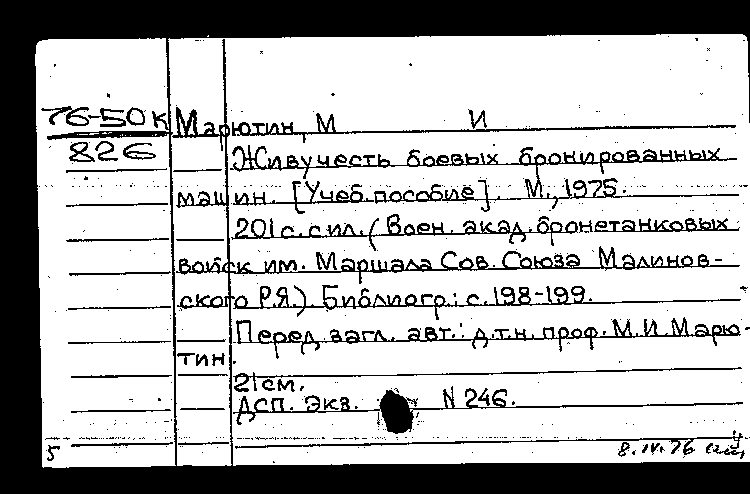 76-50к Марютин, М И
826 Живучесть боевых бронированных
машин. [Учеб. пособие]. М., 1975.
201 с. с ил. (Воен. акад. бронетанковых
войск им. Маршала Сов. Союза Малинов-
ского Р.Я.). Библиогр.: с. 198-199.
Перед загл. авт.: д.т.н. проф. М.И. Марю-
тин.
21 см.
ДСП. Экз. N 246.
5 8.IV.76